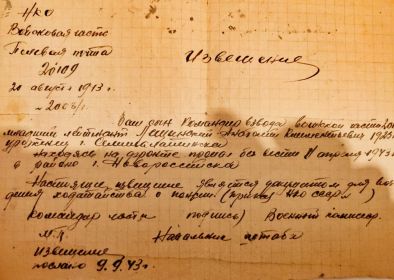 НКО
Войсковая часть
Полевая почта
20109
20 августа 1943 г
Извещение
Ваш сын Командир взвода войсковой части
младший лейтенант Анатолий Климентьевич 1923
уроженец г.
Находясь на фронте пропал без вести апреля 1943
в районе г. Новороссийска
Настоящее извещение является документом для воз
ходатайства о пенсии (приказ НКО СССР
Командир части подпись) Военный комиссар
М.П. Начальник штаба
Извещение
послано 9.9.43 г.